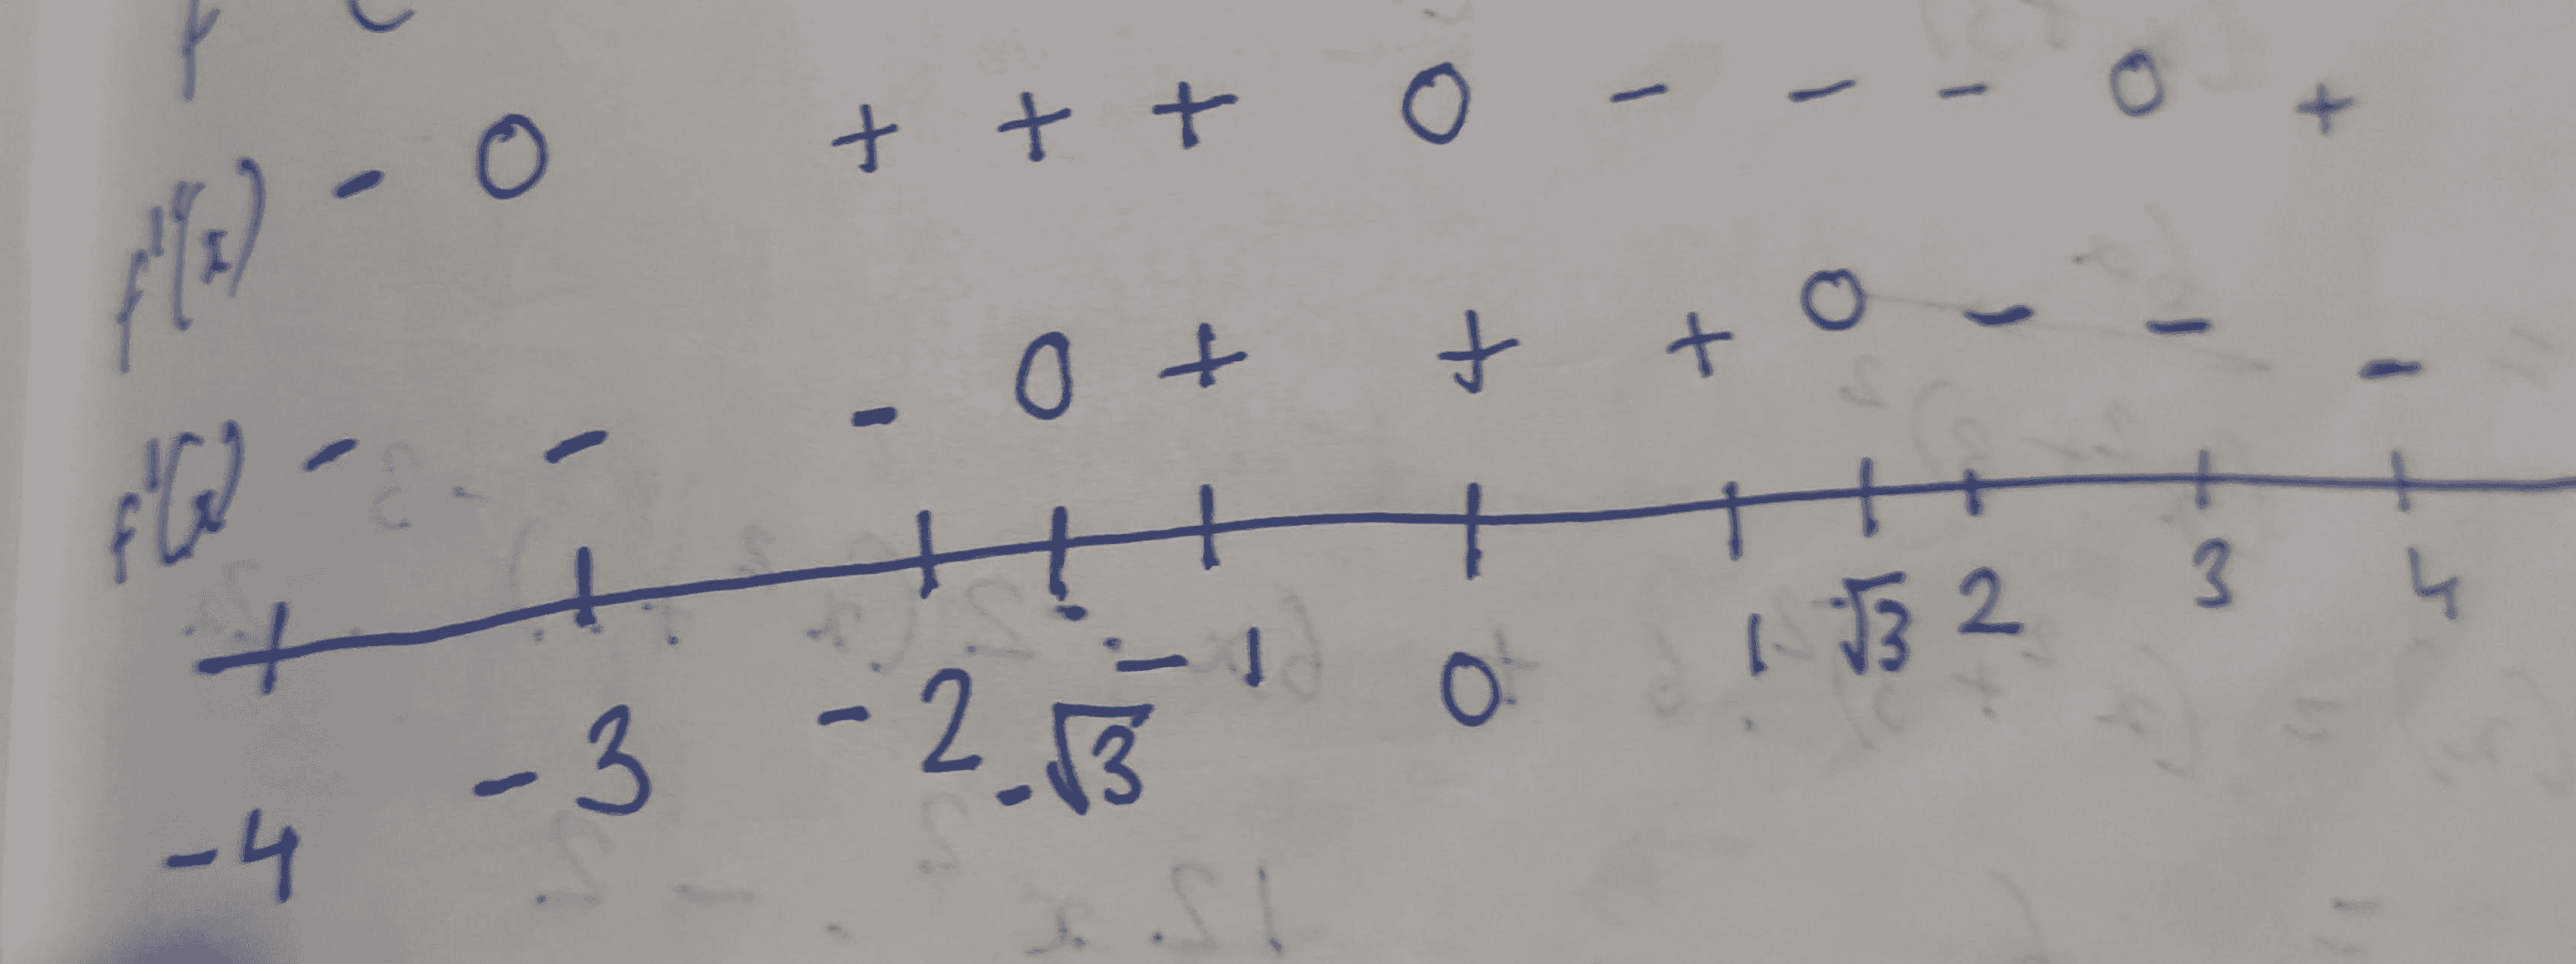 f''(x) - 0 + + + 0 - - - 0 +
f'(x) - - - 0 + + + 0 - - -
-4 -3 -2 -√3 -1 0 1 √3 2 3 4